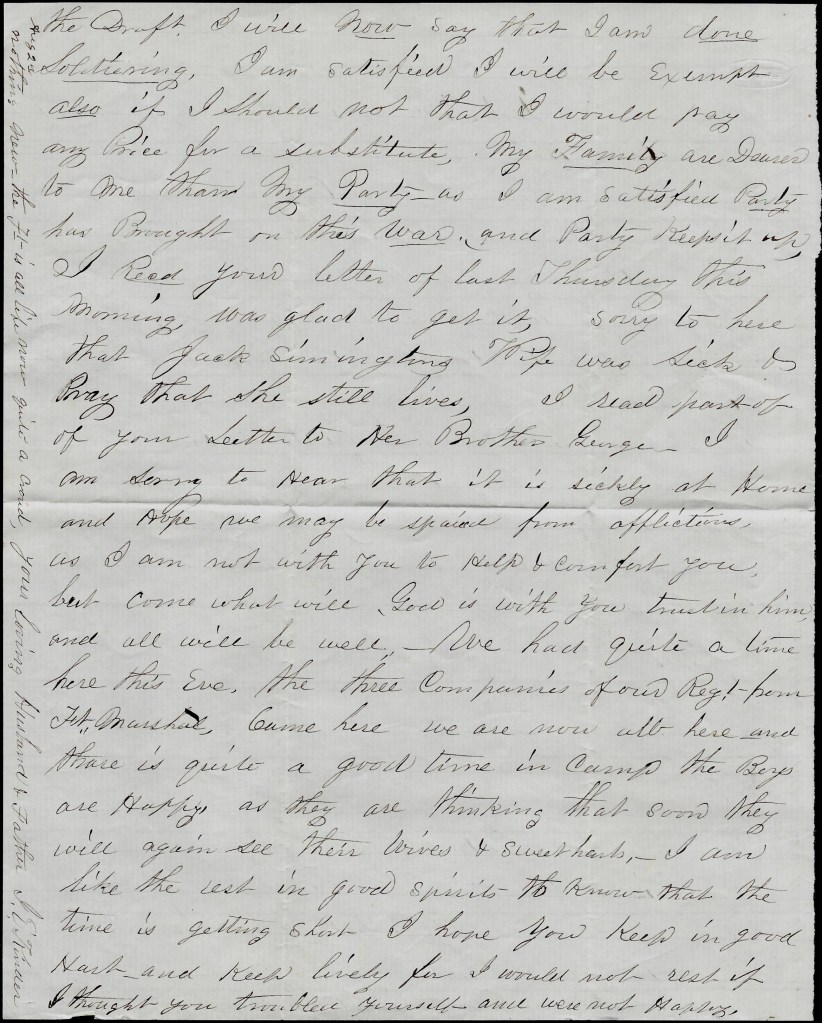 the Draft. I will Now say that I am done
Soldiering, I am satisfied I will be Exempt
also if I should not that I would pay
any Price for a substitute, My Family are Dearer
to me than My Party as I am satisfied Party
has Brought on this War, and Party Keeps it up,
I Recd your letter of last Thursday this
Morning, was glad to get it, sorry to here
that Jack Simingtons Wife was sick &
Pray that she still lives, I read part of
of your Letter to Her Brother George – I
am sorry to Hear that it is sickly at Home
and Hope we may be spaired from afflictions,
as I am not with you to Help & comfort you,
but come what will God is with you trust in him,
and all will be well, – We had quite a time
here this Eve. the three Companies of our Regt from
Ft. Marshal, Came here we are now all here and
thare is quite a good time in Camp the Boys
are Happy, as they are thinking that soon they
will again see their Wives & sweetharts, – I am
like the rest in good spirits to Know that the
time is getting short I hope you Keep in good
Hart and Keep lively for I would not rest if
I thought you troubled yourself and were not Happy.
Aug 2d
nothing New – the is all life now quite a croud, your loving Husband & Father